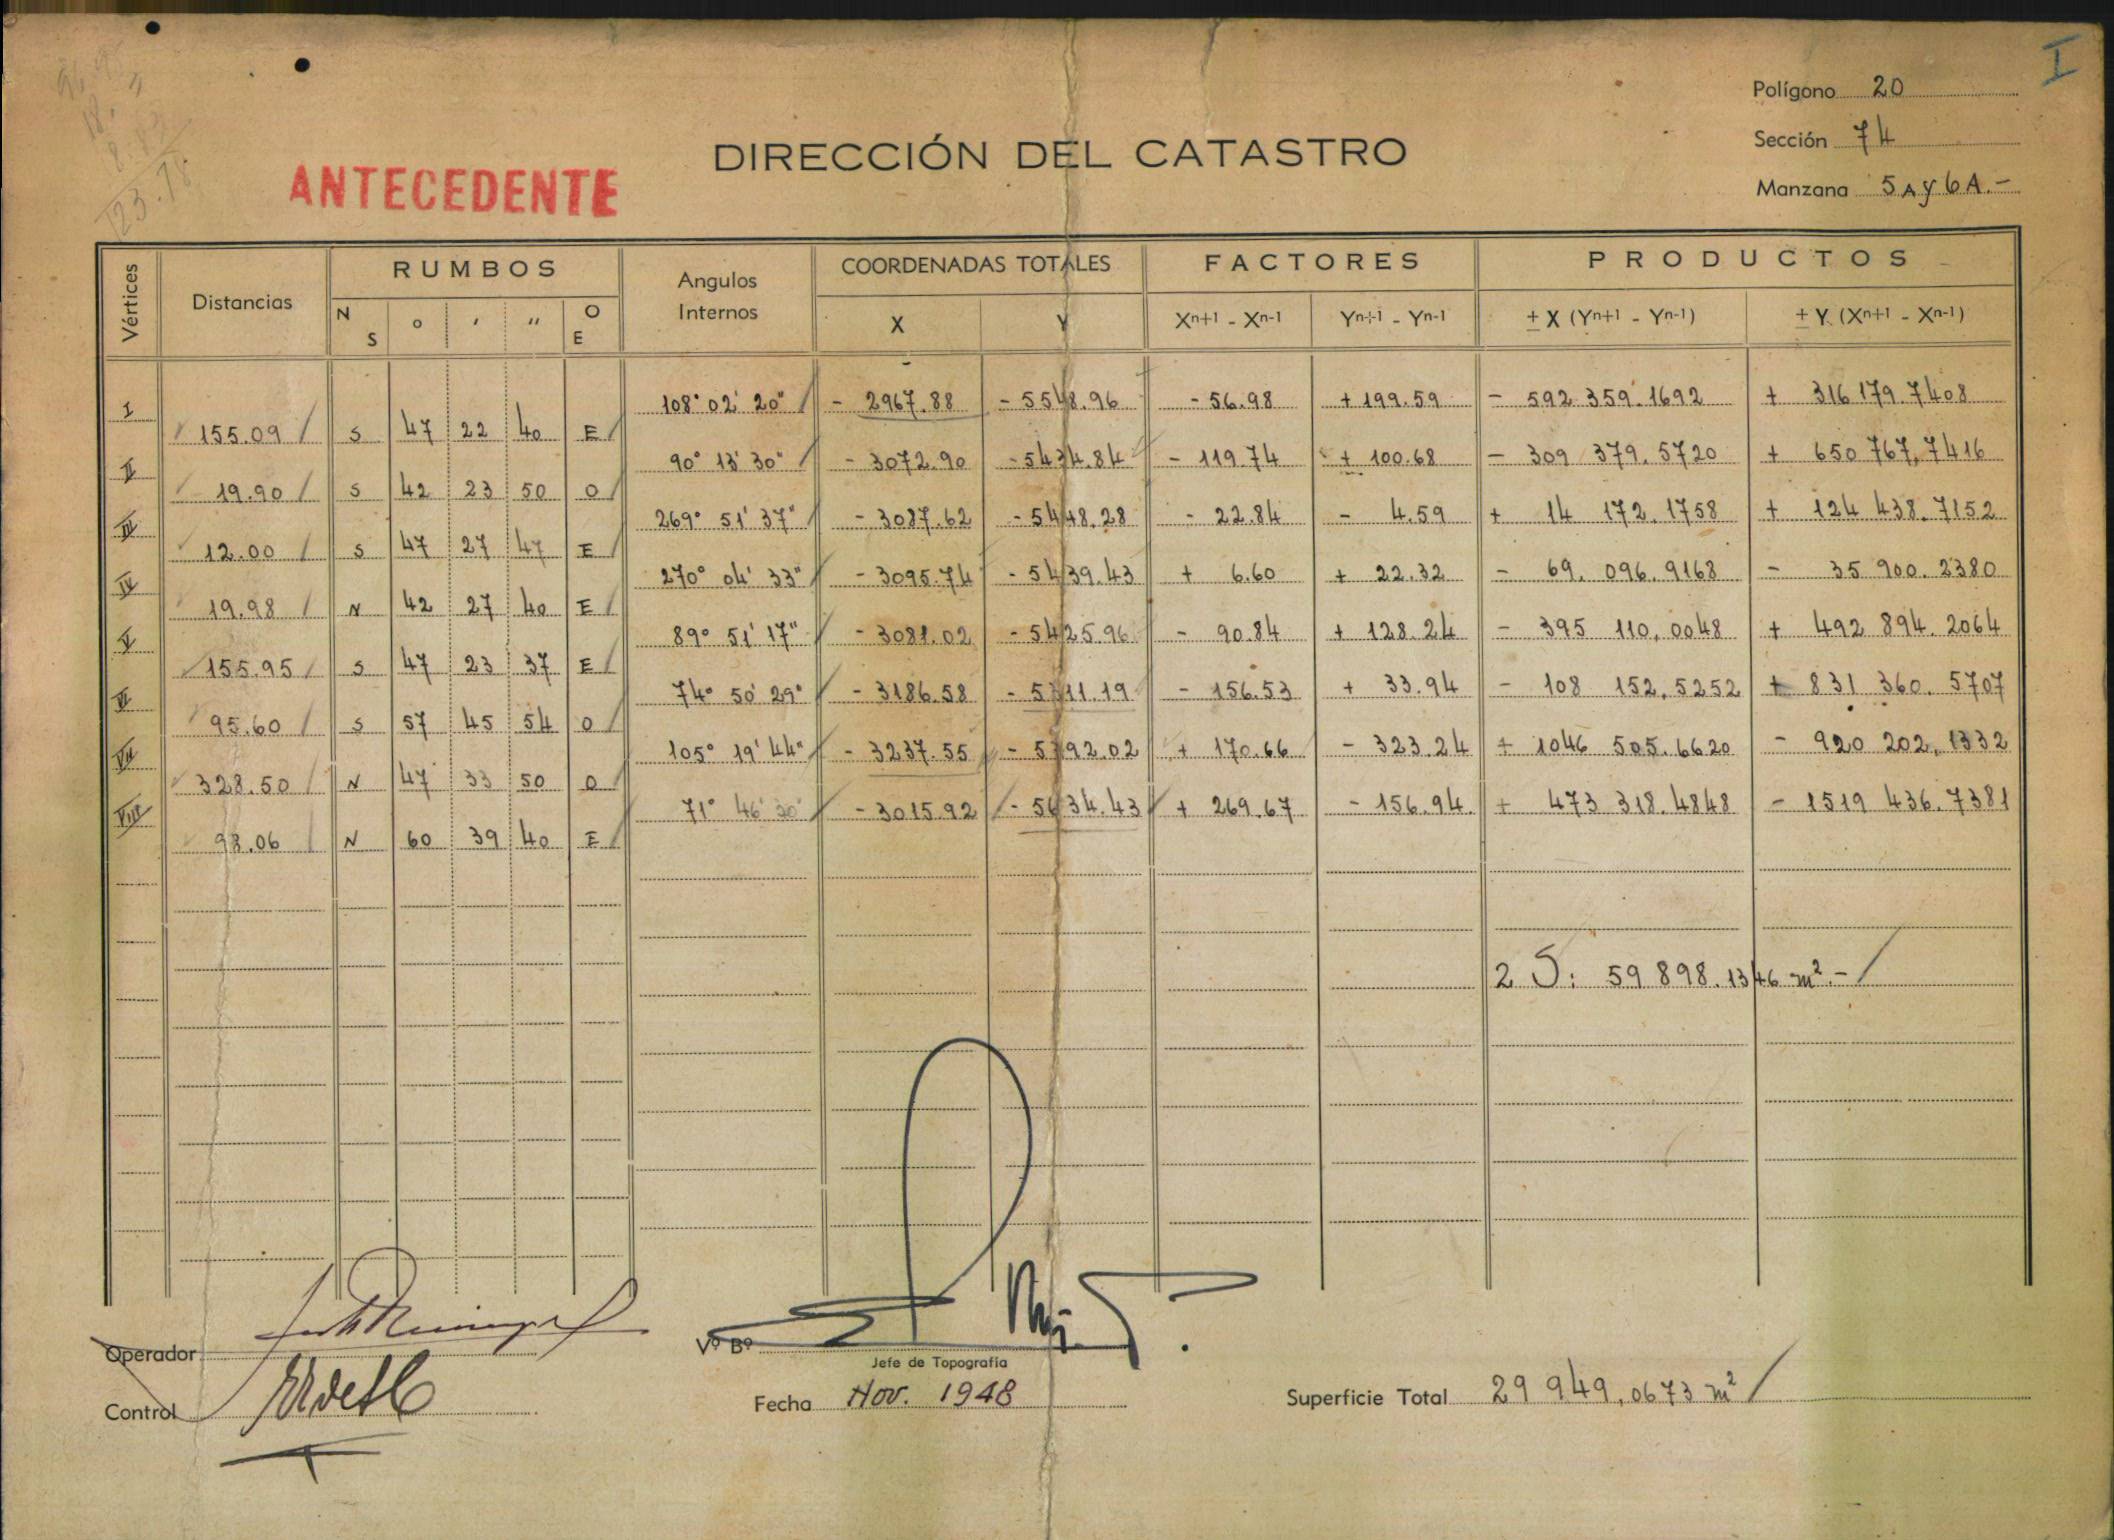 I
Polígono 20
Sección 74
Manzana 5A y 6A.-
DIRECCIÓN DEL CATASTRO
ANTECEDENTE
Vértices Distancias RUMBOS Angulos Internos COORDENADAS TOTALES FACTORES PRODUCTOS
N S ° ' '' O E X Y Xn+1 - Xn-1 Yn+1 - Yn-1 ± X (Yn+1 - Yn-1) ± Y (Xn+1 - Xn-1)
I 108° 02' 20" - 2967.88 - 5548.96 - 56.98 + 199.59 - 592 359.1692 + 316 179.7408
155.09 S 47 22 40 E
II 90° 13' 30" - 3072.90 - 5434.84 - 119.74 + 100.68 - 309 379.5720 + 650 767,7416
19.90 S 42 23 50 O
III 269° 51' 37" - 3087.62 - 5448.28 - 22.84 - 4.59 + 14 172.1758 + 124 438.7152
12.00 S 47 27 47 E
IV 270° 04' 33" - 3095.74 - 5439.43 + 6.60 + 22.32 - 69. 096.9168 - 35 900.2380
19.98 N 42 27 40 E
V 89° 51' 17" - 3081.02 - 5425.96 - 90.84 + 128.24 - 395 110,0048 + 492 894.2064
155.95 S 47 23 37 E
VI 74° 50' 29" - 3186.58 - 5311.19 - 156.53 + 33.94 - 108 152,5252 + 831 360.5707
95.60 S 57 45 54 O
VII 105° 19' 44" - 3237.55 - 5392.02 + 170.66 - 323.24 + 1046 505.6620 - 920 202,1332
328.50 N 47 33 50 O
VIII 71° 46' 30" - 3015.92 - 5634.43 + 269.67 - 156.94 + 473 318.4848 - 1519 436.7381
98.06 N 60 39 40 E
2 S: 59 898.1346 m².-
Operador
Vº Bº
Jefe de Topografía
Control
Fecha Nov. 1948
Superficie Total 29 949,0673 m²